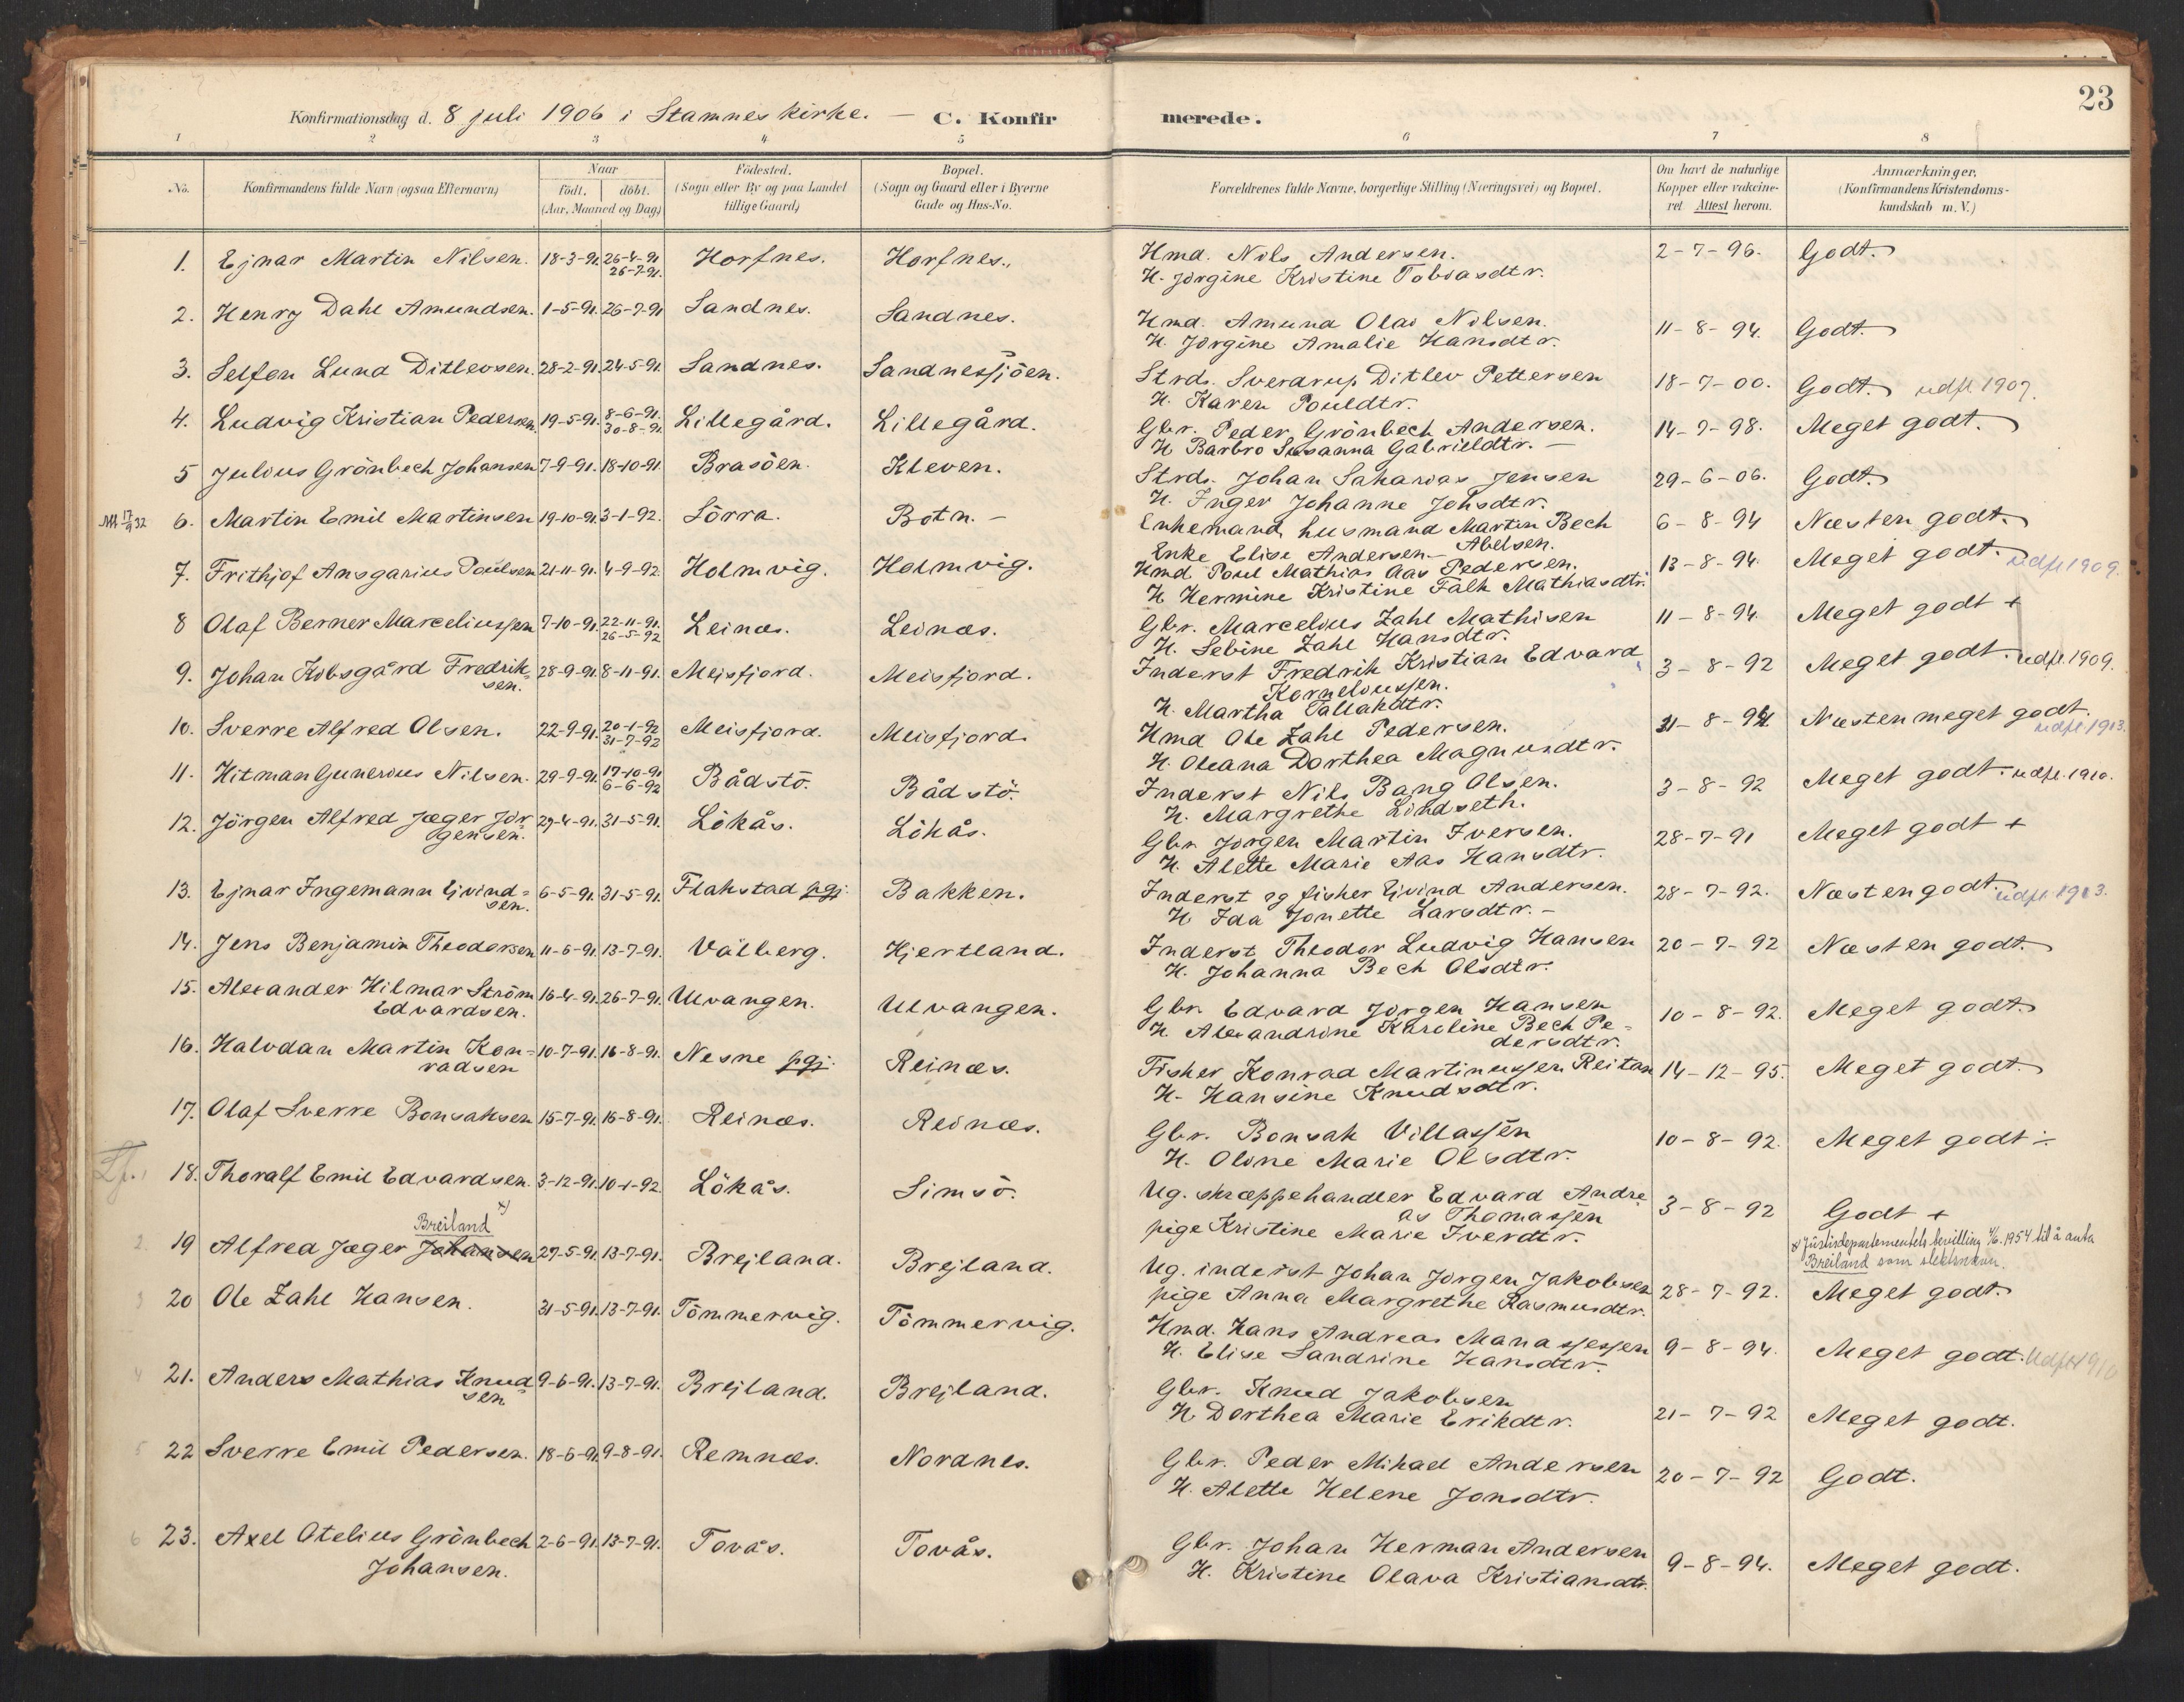 23
Konfirmationsdag d. 8 juli 1906 i Stamnes kirke. — C. Konfirmerede.
1 2 3 4 5 6 7 8
No. Konfirmandens fulde Navn (ogsaa Efternavn) Naar født. døbt. (Aar, Maaned og Dag) Födested. (Sogn eller By og paa Landet tillige Gaard) Bopæl. (Sogn og Gaard eller i Byerne Gade og Hus-No. Forældrenes fulde Navne, borgerlige Stilling (Næringsvei) og Bopæl. Om havt de naturlige Kopper eller vakcineret Attest herom. Anmærkninger. (Konfirmandens Kristendomskundskab m. V.)
1. Ejnar Martin Nilsen. 18-3-91. 26-4-91 26-7-91. Horfnes. Horfnes. Hmd. Nils Andersen. 2-7-96. Godt.
H. Jörgine Kristine Tobiasdtr.
2. Henry Dahl Amundsen. 1-5-91. 26-7-91 Sandnes. Sandnes. Hmd. Amund Olai Nilsen. 11-8-94. Godt.
H. Jörgine Amalie Hansdtr.
3. Selfon Lund Ditlevsen. 28-2-91. 24-5-91. Sandnes. Sandnessjöen. Strds. Sverdrup Ditlev Pettersen 18-7-00. Godt. udfl. 1907.
H. Karen Pouldtr.
4. Ludvig Kristian Pedersen. 19-5-91. 8-6-91. 30-8-91. Lillegård. Lillegård. Gbr. Peder Grönbech Andersen. 14-7-98. Meget godt.
H Barbro Susanna Gabrieldtr. —
5 Julius Grönbech Johansen 7-9-91. 18-10-91. Brasöen. Kleven. Strds. Johan Sakarias Jensen 29-6-06. Godt.
H. Inger Johanne Johsdtr.
17/9 32 6. Martin Emil Martinsen 19-10-91. 3-1-92. Sörra. Botn. — Enkemand, husmand Martin Bech Abelsen. 6-8-94 Næsten godt.
Enke Elise Andersen. —
7. Frithjof Ansgarius Poulsen 21-11-91. 4-9-92 Holmvig. Holmvig. Hmd Poul Mathias Aas Pedersen. 13-8-94. Meget godt. udfl 1909.
H Hermine Kristine Falk Mathiasdtr.
8 Olaf Berner Marceliussen 7-10-91. 22-11-91. 26-5-92 Leinæs. Leinæs. Gbr. Marcelius Zahl Mathisen 11-8-94. Meget godt +
H. Sebine Zahl Hansdtr.
9. Johan Kobsgård Fredriksen. 28-9-91. 8-11-91. Meisfjord. Meisfjord. Inderst Fredrik Kristian Edvard Korneliussen. 3-8-92 Meget godt. udfl. 1909.
H. Martha Tallakdtr.
10. Sverre Alfred Olsen. 22-9-91. 20-1-92 31-7-92 Meisfjord. Meisfjord. Hmd Ole Zahl Pedersen. 31-8-94. Næsten meget godt. udfl 1913.
H. Oleana Dorthea Magnusdtr.
11. Hitman Gunerius Nilsen. 29-9-91. 17-10-91 6-6-92 Bådstö. Bådstö. Inderst Nils Bang Olsen. 3-8-92 Meget godt. udfl. 1910.
H. Margrethe Lindseth.
12. Jörgen Alfred Jæger Jörgensen. 29-4-91. 31-5-91. Lökås. Lökås. Gbr Jörgen Martin Iversen. 28-7-91 Meget godt +
H. Alette Marie Aas Hansdtr.
13. Ejnar Ingemann Ejvindsen. 6-5-91. 31-5-91. Flakstad pgj. Bakken. Inderst og fisker Ejvind Andersen. 28-7-92. Næsten godt. udfl. 1913.
H Ida Jonette Larsdtr. —
14. Jens Benjamin Theodorsen 11-6-91. 13-7-91. Valberg. Hjertland. Inderst Theodor Ludvig Hansen 20-7-92 Næsten godt.
H. Johanna Bech Olsdtr.
15. Alexander Hilmar Ström Edvardsen. 16-4-91. 26-7-91. Ulvangen. Ulvangen. Gbr. Edvard Jörgen Hansen 10-8-92. Meget godt.
H Alexandrine Karoline Bech Pedersdtr.
16. Halvdan Martin Konradsen 10-7-91. 16-8-91. Nesne pgj. Reinæs. Fisker Konrad Martinussen Reitan 14-12-95. Meget godt.
H. Hansine Knudsdtr.
17. Olaf Sverre Bonsaksen 15-7-91. 16-8-91. Reinæs. Reinæs. Gbr. Bonsak Villassen 10-8-92. Meget godt ÷
H. Oline Marie Olsdtr.
18. Thoralf Emil Edvardsen. 3-12-91. 10-1-92. Lökås. Simsö. Ug. skræppehandler Edvard Andreas Thomassen 3-8-92 Godt +
pige Kristine Marie Iverdtr.
2. 19 Alfred Jæger Johansen Breiland x) 27-5-91. 13-7-91. Brejland. Brejland. Ug. inderst Johan Jörgen Jakobsen 28-7-92. Meget godt.
pige Anna Margrethe Rasmusdtr.
x Justisdepartementets bevilling 4/6. 1954 til å anta Breiland som slektsnavn.
3 20 Ole Zahl Hansen. 31-5-91. 13-7-91. Tömmervig. Tömmervig. Hmd. Hans Andreas Manassessen 9-8-94. Meget godt. Udfl 1910
H. Elise Sandrine Hansdtr.
4 21. Anders Mathias Knudsen 9-6-91. 13-7-91. Brejland. Brejland. Gbr. Knud Jakobsen 21-7-92 Meget godt.
H Dorthea Marie Erikdtr.
5 22 Sverre Emil Pedersen. 18-6-91. 9-8-91. Remnæs. Nordnes. Gbr. Peder Mikael Andersen 20-7-92 Godt.
H. Alette Helene Jonsdtr.
6 23. Axel Otelius Grönbech Johansen. 2-6-91. 13-7-91. Tovås. Tovås. Gbr. Johan Herman Andersen 9-8-94. Meget godt.
H. Kristine Olava Kristiansdtr.